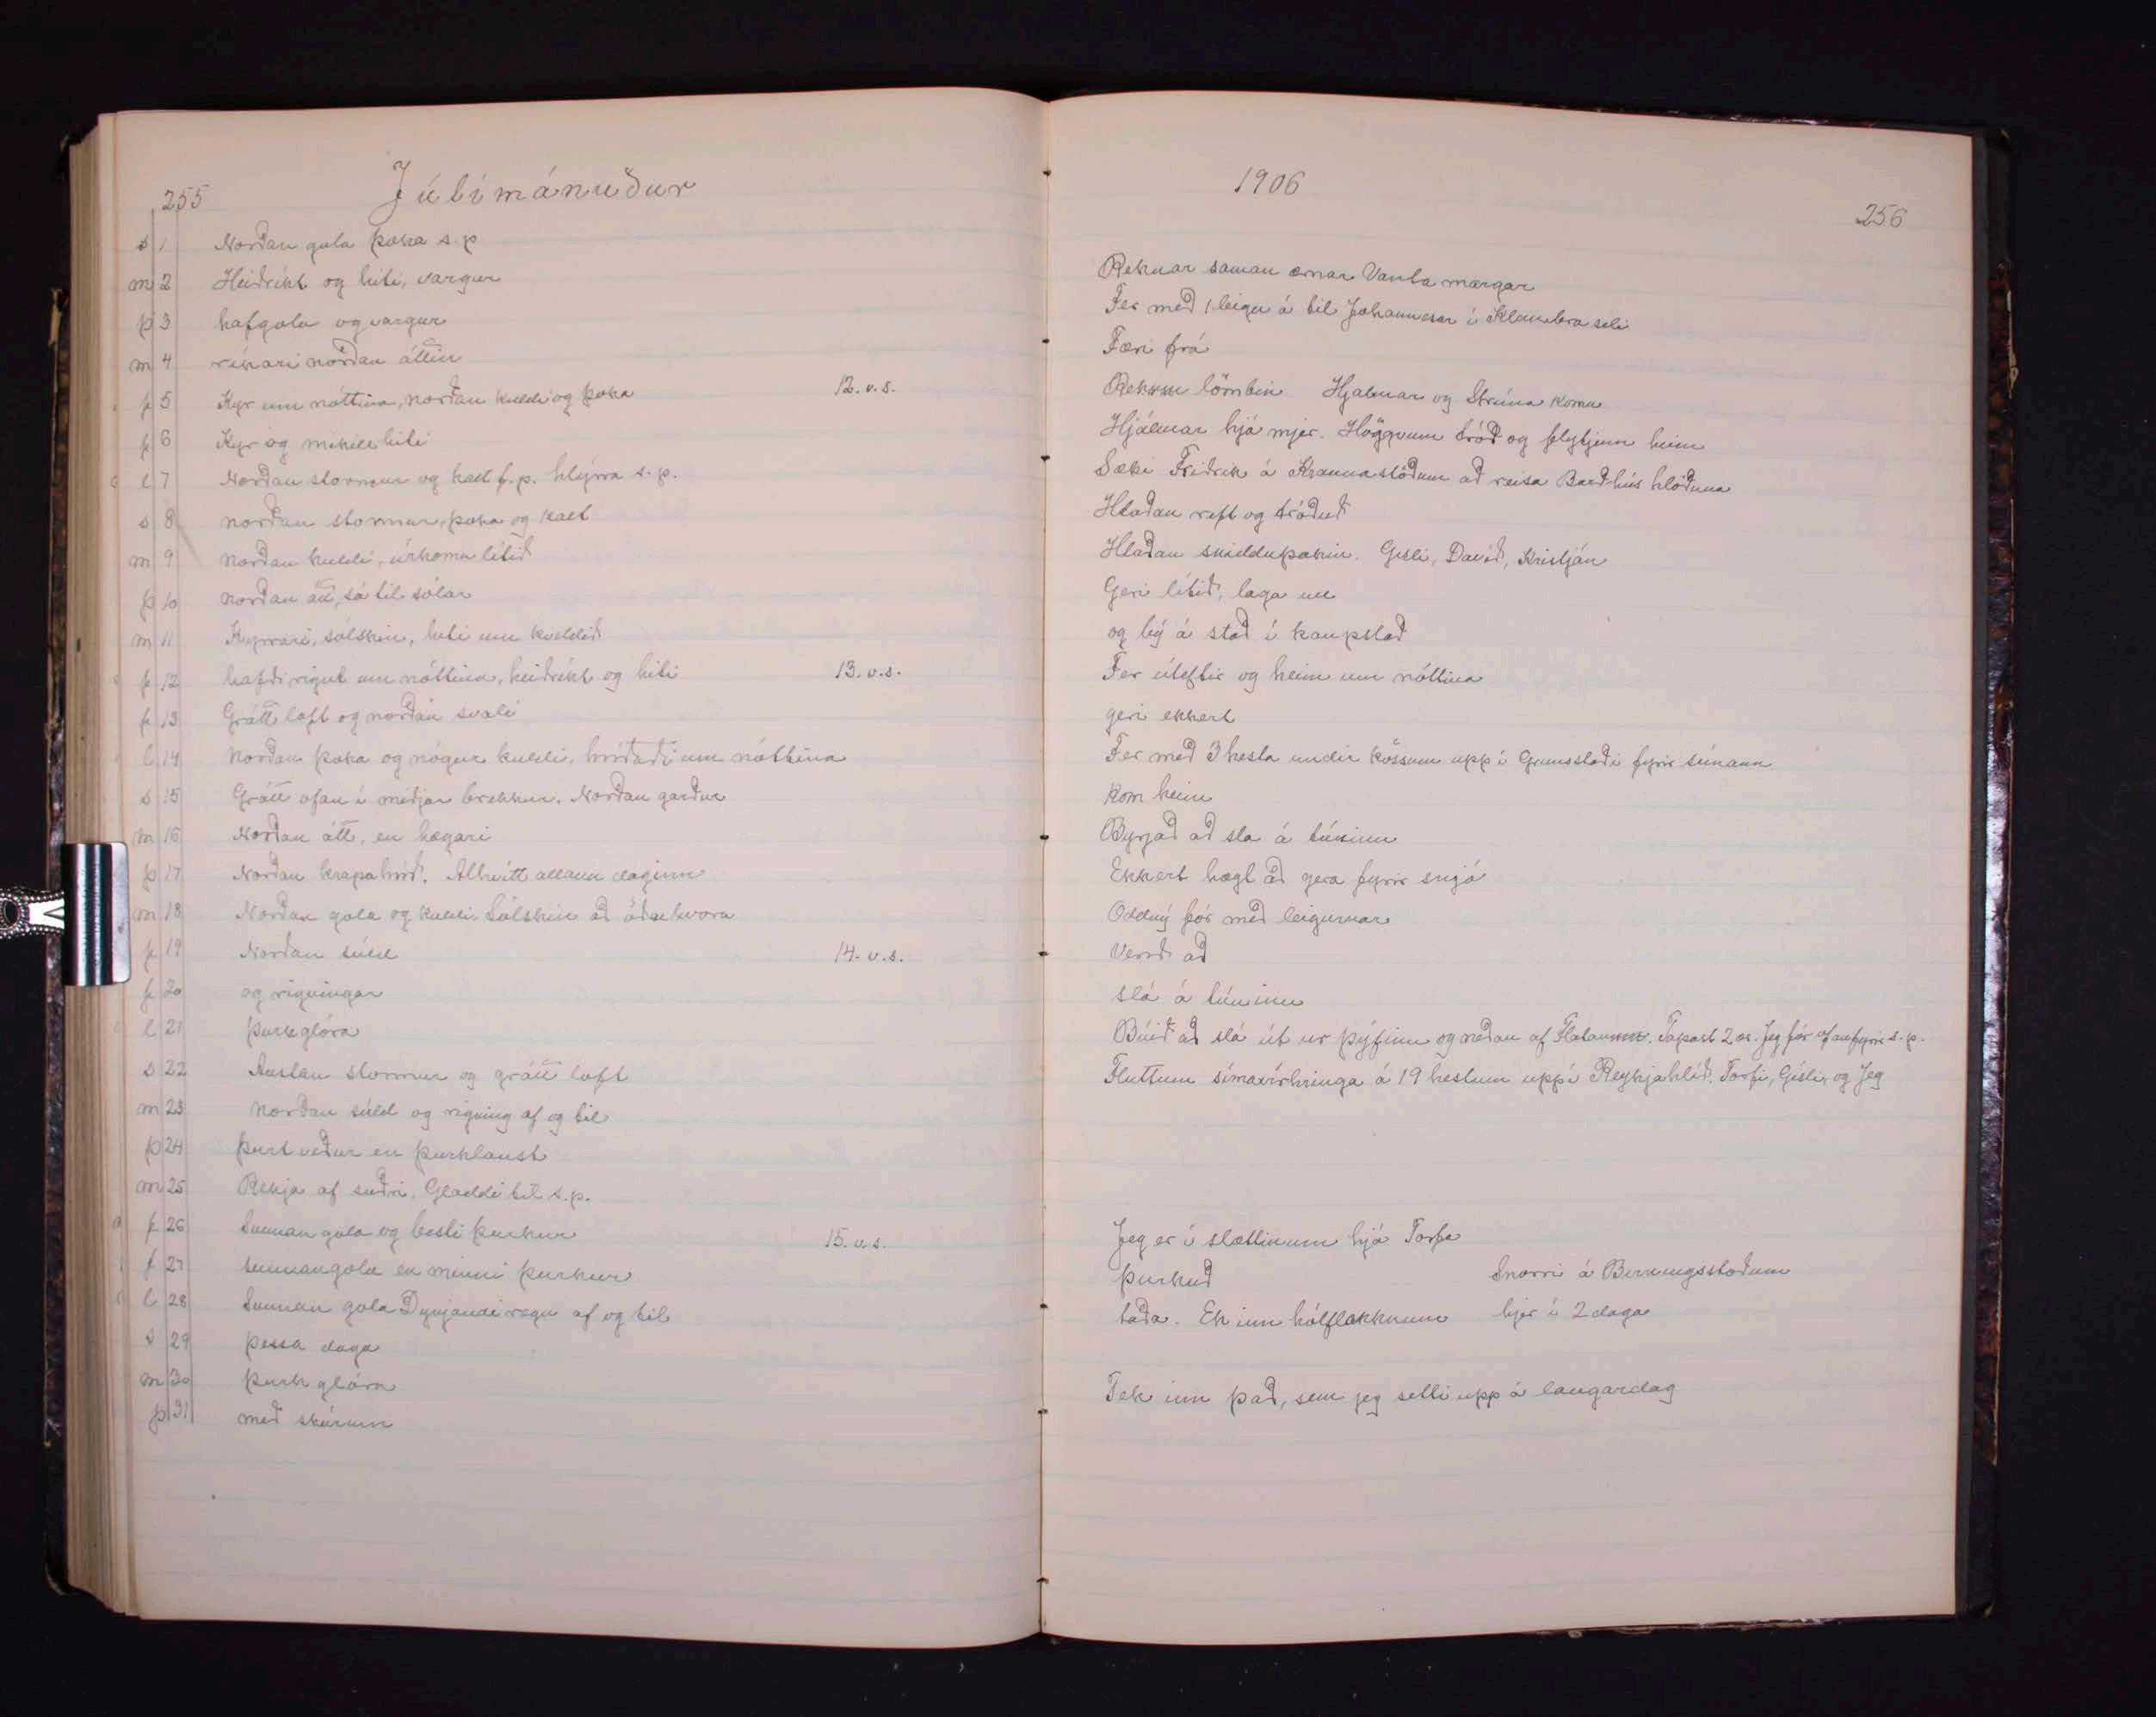 255
Júlímánuður
s 1 Norðan gola þoka s.p
m 2 Heiðríkt og hiti, vargur
þ 3 hafgola og vargur
m 4 norðan áttin
f 5 Kyr um nóttina, norðan kuldi og þoka 12. v.s.
f 6 Kyr og mikill hiti
l 7 Norðan stormur og kalt f.p. hlýrra s.p.
s 8 norðan stormur, þoka og kalt
m 9 norðan kuldi, úrkomu lítið
þ 10 norðan átt, sá til sólar
m 11 Kyrrari, sólskin, hiti um kveldið
f 12 hafði rignt um nóttina, heiðríkt og hiti 13. v.s.
f 13 Grátt loft og norðan svali
l 14 Norðan þoka og nógur kuldi, hríðaði um nóttina
s 15 Grátt ofan í miðjar brekkur. Norðan garður
m 16 Norðan átt, en hægari
þ 17 Norðan krapahríð. Alhvítt allann daginn
m 18 Norðan gola og kuldi. Sólskin að öðruhvoru
f 19 Norðan súld 14. v.s.
f 20 og rigningar
l 21 þurkglóra
s 22 Austan stormur og grátt loft
m 23 Norðan súld og rigning af og til
þ 24 þurt veður en þurklaust
m 25 Rekja af suðri. Gladdi til s.p.
f 26 Sunnan gola og besti þurkur 15. v.s.
f 27 sunnangola en minni þurkur
l 28 Sunnan gola Dynjandi regn af og til
s 29 þessa daga
m 30 þurk glóra
þ 31 með skúrum
1906
256
Reknar saman ærnar Vanta margar
Fer með 1 leigu á til Johannesar í Klambraseli
Færi frá
Rekum lömbin Hjalmar og Strúna komu
Hjálmar hjá mjer. Höggvum tróð og flytjum heim
Sæki Friðrik á Kraunastöðum að reisa Barðhús hlöðuna
Hlaðan reft og tróðuð
Hlaðan snidduþakin. Gísli, Davíð, Kristján
Geri lítið, laga um
og bý á stað í kaupstað
Fer úteftir og heim um nóttina
geri ekkert
Fer með 3 hesta undir kössum upp í Grímsstaði fyrir símann
kom heim
Byrjað að sla á túninu
Ekkert hægt að gera fyrir snjó
Oddný fór með leigurnar
Verið að
slá á túninu
Búið að slá út ur þýfinu og neðan af Flatanum. Tapast 2 ær. Jeg fór ofanfyrir s.p.
Fluttum símavírhringa á 19 hestum upp í Reykjahlíð. Torfi, Gísli, og Jeg
Jeg er í slættinum hjá Torfa
þurkuð Snorri á Birningsstöðum
taða. Ek inn hálflokknum hjer í 2 daga
Tek inn það, sem jeg setti upp á laugardag